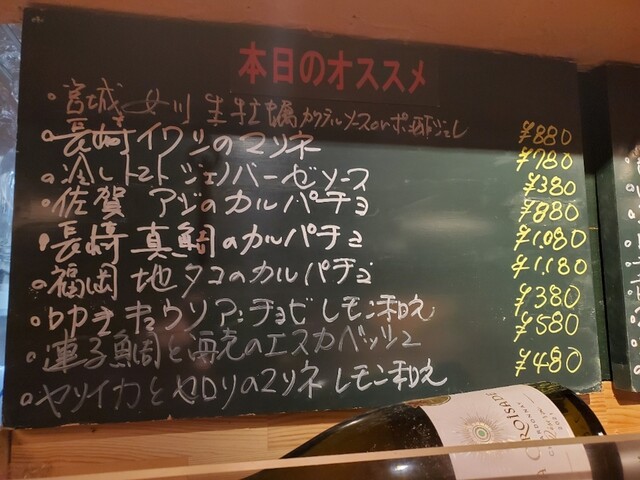 本日のオススメ
宮城 女川 生牡蠣 カクテルソースorポン酢ジュレ ¥880
長崎 イワシのマリネ ¥780
冷しトマト ジェノバーゼソース ¥380
佐賀 アジのカルパチョ ¥880
長崎 真鯛のカルパチョ ¥1,080
福岡 地タコのカルパチョ ¥1,180
叩きキュウリ アンチョビレモン和え ¥380
連子鯛と海老のエスカベッシュ ¥580
ヤリイカとセロリのマリネ レモン和え ¥480
CROISADE
CHARDONNAY